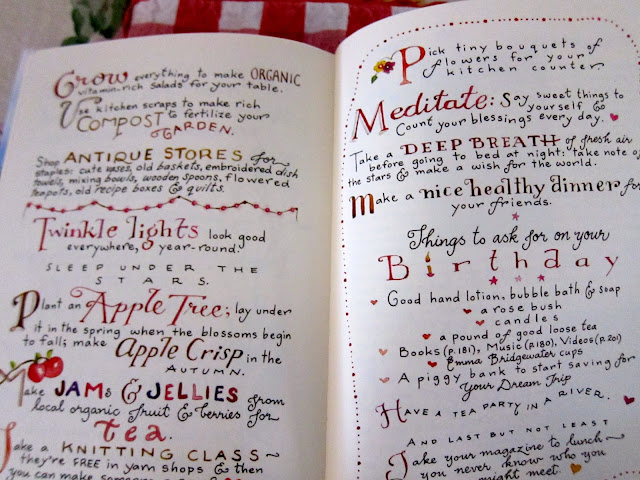 Grow everything to make ORGANIC
vitamin-rich salads for your table.
Use kitchen scraps to make rich
COMPOST to fertilize your
GARDEN.
Shop ANTIQUE STORES for
staples: cute vases, old baskets, embroidered dish
towels, mixing bowls, wooden spoons, flowered
teapots, old recipe boxes & quilts.
Twinkle lights look good
everywhere, year-round.
SLEEP UNDER THE
STARS.
Plant an Apple Tree; lay under
it in the spring when the blossoms begin
to fall; make Apple Crisp in the
AUTUMN.
Make JAMS & JELLIES from
local organic fruit & berries for
tea.
Take a KNITTING CLASS~
they're FREE in yarn shops & then
you can make someone
Pick tiny bouquets of
flowers for your
kitchen counter.
Meditate: Say sweet things to
yourself &
Count your blessings every day.
Take a DEEP BREATH of fresh air
before going to bed at night: take note of
the stars & make a wish for the world.
Make a nice healthy dinner for
your friends.
Things to ask for on your
Birthday
Good hand lotion, bubble bath & soap
a rose bush
candles
a pound of good loose tea
Books (p.181), Music (p.180), Videos (p.201)
Emma Bridgewater cups
A piggy bank to start saving for
Your Dream Trip
HAVE A TEA PARTY IN A RIVER.
AND LAST BUT NOT LEAST
Take your magazine to lunch~
you never know who you
might meet